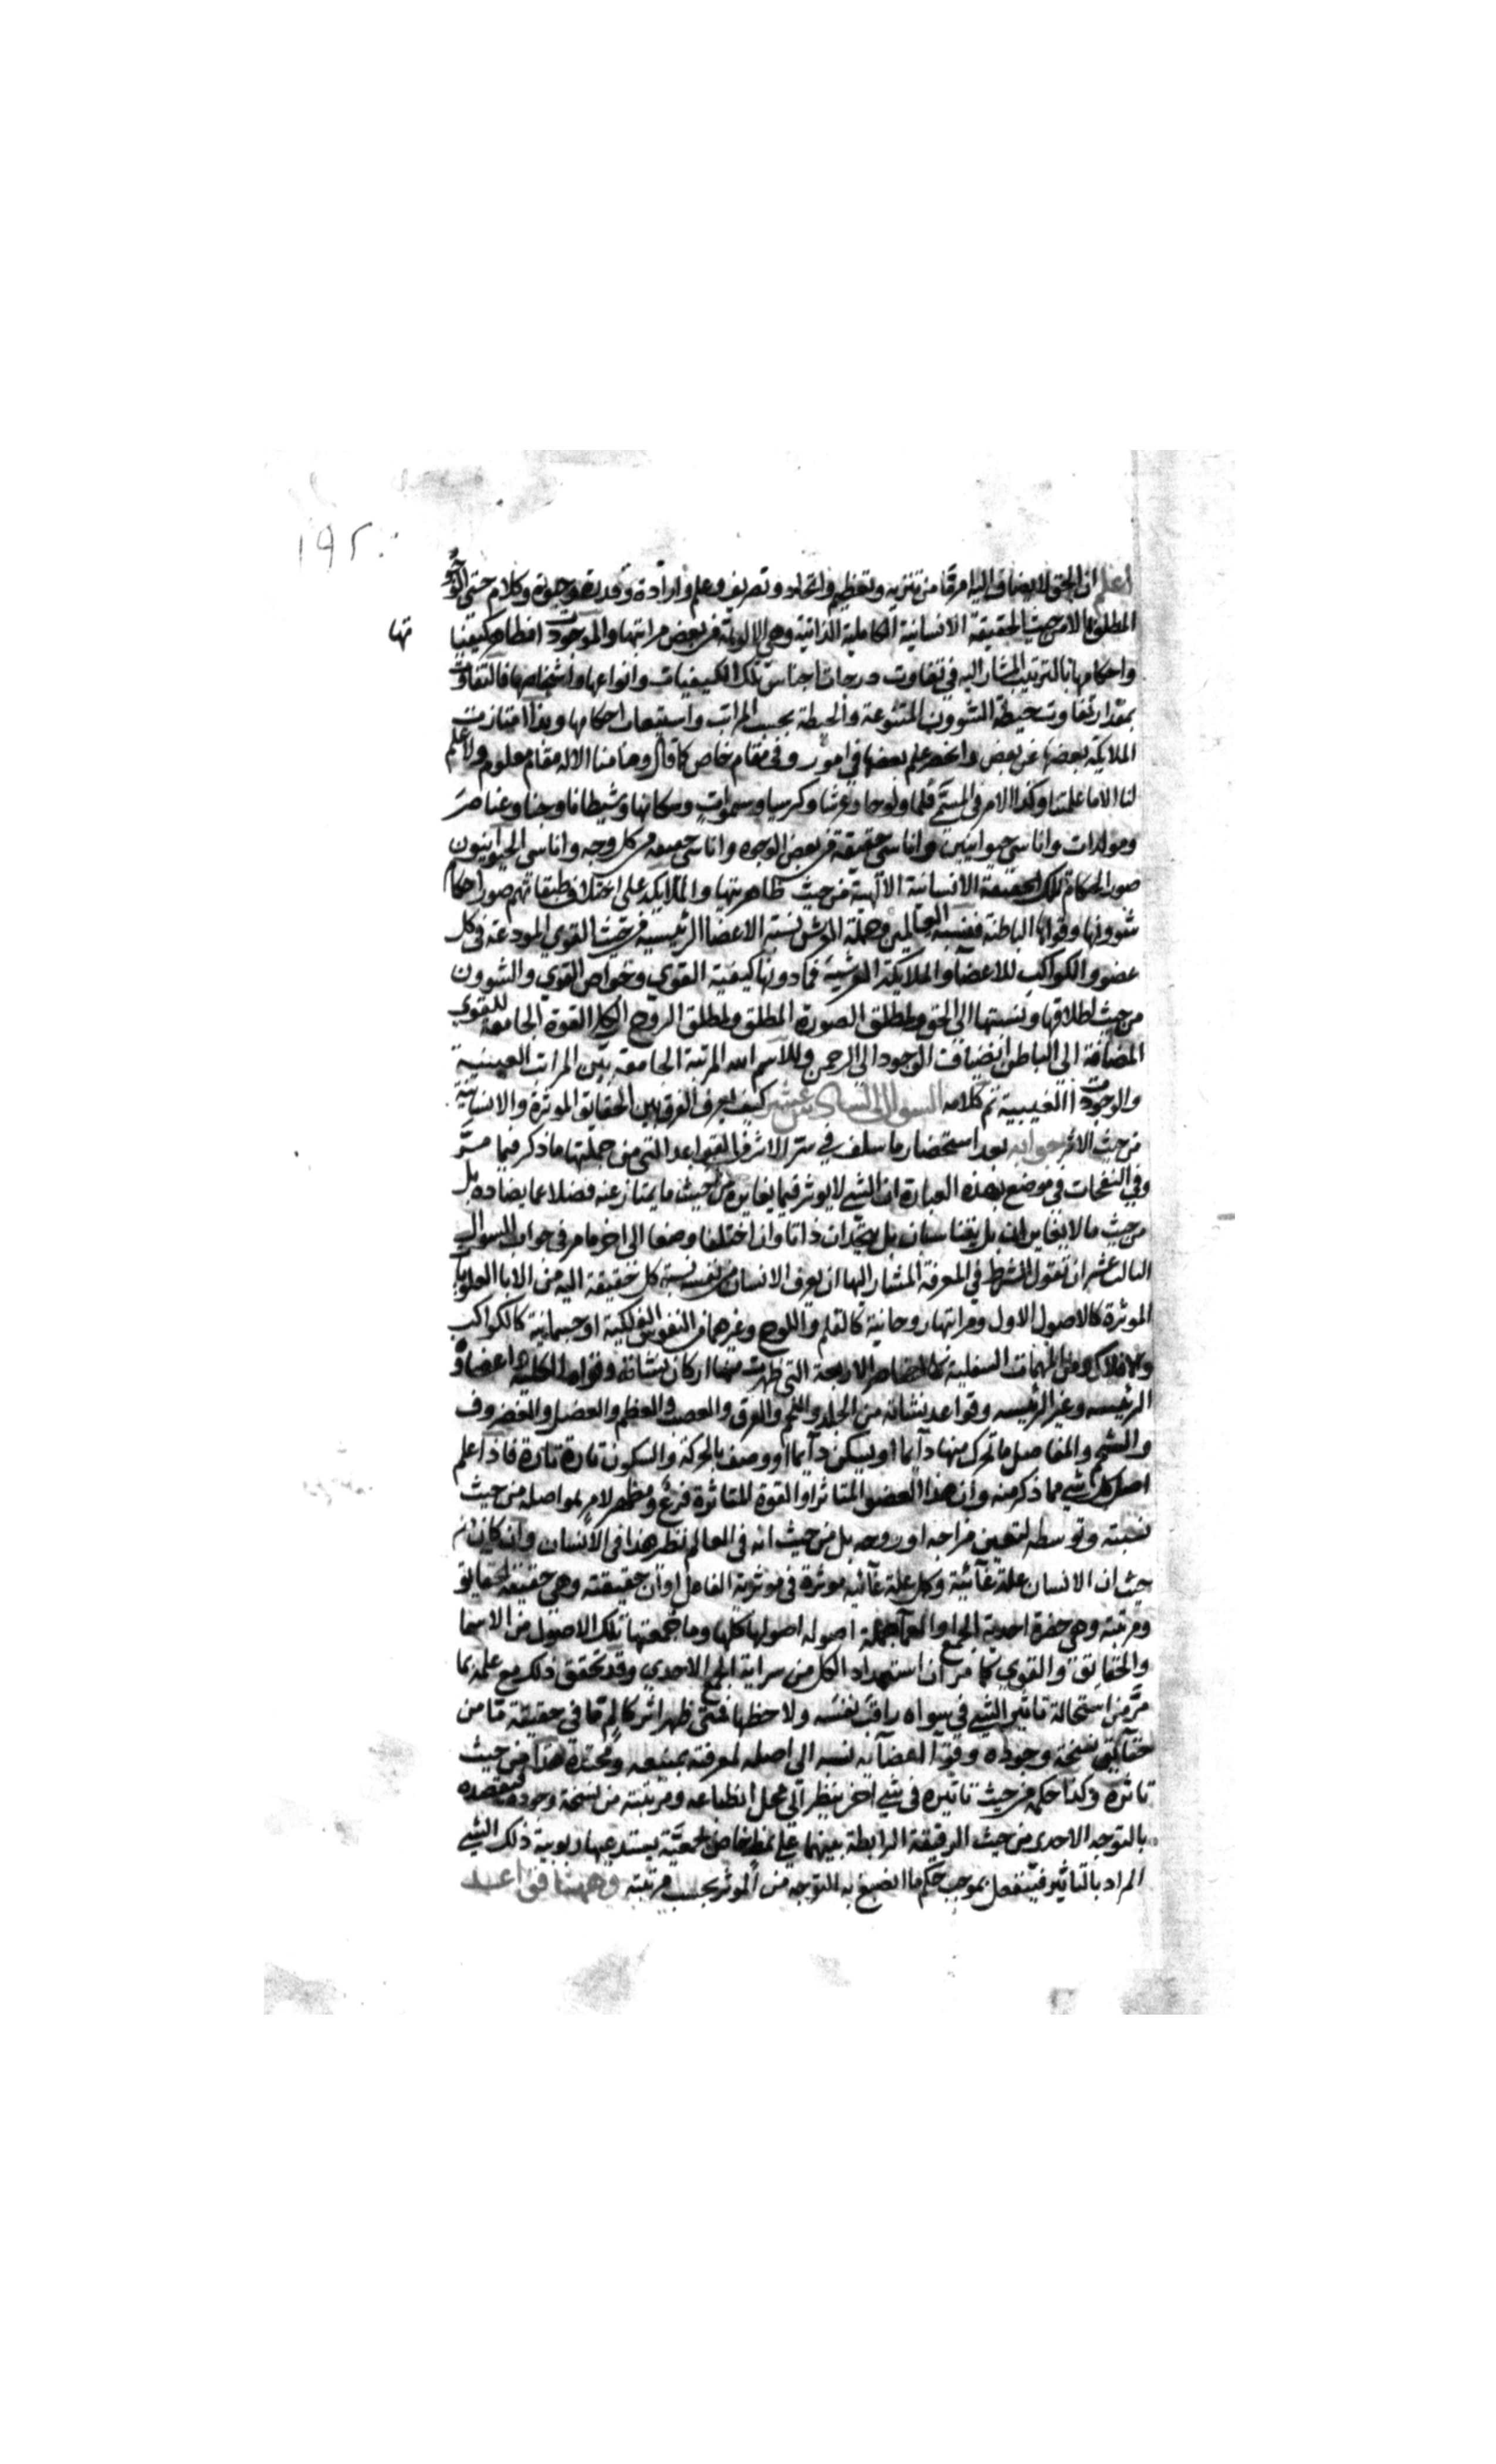 ١٩٢
اعلم ان الحق لا يضاف اليه امر قا من تنزيه وتعظيم واتحاد وتصريف وعلم وارادة وقدرة وحيوة وكلام حتى الوجود
المطلق الا من حيث الحقيقة الانسانية الكاملية الذاتية وهي الالوهة من بعض مراتبها والموجودات مظاهر كيفيا
تها
واحكامها بالترتيب المشار اليه في تفاوت درجات اجناس تلك الكيفيات وانواعها واشخاصها فالتفاوت
بمقدار تفاوت حيطة الشوون المتنوعة والحيطة بحسب المراتب واستيعاب احكامها وبذا امتازت
الملايكة بعضها عن بعض وانحصر علم بعضها في امور وفى مقام خاص كما قال وما منا الا له مقام معلوم ولا علم
لنا الا ما علمتنا وكذا الامر في المسمى قلما ولوحا وعرشا وكرسيا وسموات وسكانها وشيطانا وجنا وعناصر
ومولدات واناسي حيوانيين واناسي حقيقة من بعض الوجوه واناسي حقيقة من كل وجه واناسي الحيوانيون
صور احكام تلك الحقيقة الانسانية الالهية من حيث ظاهريتها والملايكة على اختلاف طبقاتهم صور احكام
شوونها وقواها الباطنة فنسبة العالمين وحملة العرش نسبة الاعضا الرئيسية من حيث القوي المودعة في كل
عضو والكواكب للاعضا والملايكة العرشية فما دونها كيفية القوي وخواص القوي والشوون
من حيث اطلاقها ونسبتها الى الحق ومطلق الصورة المطلق ومطلق الروح الكل القوة الجامعة للقوي
المضافة الى الباطن انضياف الوجود الى الرحمن وللاسم الله المرتبة الجامعة بين المراتب العينية
والوجودات الغيبية تم كلامه السوال السادس عشر كيف يعرف الفرق بين الحقايق الموثرة والانسانية
من حيث الاثر جوابه بعد استحضار ما سلف في ستر الاثر في القواعد التي من جملتها ما ذكر فيما مر
وفي النفحات في موضع بهذه العبارة ان الشي لا يوثر فيما يغايره من حيث ما يمتاز عنه فضلا عما يضاده بل
من حيث ما لا يتغايران بل يتناسبان بل يتحدان ذاتا وان اختلفا وصفا الى اخر ما مر في جواب السوال
الثالث عشر ان تقول الشرط في المعرفة المشار اليها ان يعرف الانسان من نفسه نسبة كل حقيقة اليه من الابا العلويات
الموثرة كالاصول الاول ومراتبها روحانية كالقلم واللوح وغيرهما من النفوس الفلكية او جسمانية كالكواكب
والافلاك ومن الامهات السفلية كالعناصر الاربعة التي ظهرت منها اركان نشاته وقواه الكلية واعضاوه
الرئيسه وغير الرئيسه وقواعد نشاته من الجلد واللحم والعرق والعصب والعظم والعضل والغضروف
والشحم والمفاصل ما تحرك منها دآيما او يسكن دآيما او وصف بالحركة والسكون تارة تارة فاذا علم
اصل كل شي مما ذكر منه وان هذا العضو المتاثر او القوة المتاثرة فرع ومظهر لامر لمواصله من حيث
نسبته وتوسطه لتعين مزاجه او روحه بل من حيث انه في العالم نظر هذا في الانسان وان كان من
حيث ان الانسان علة غآئية وكل علة غآئيه موثرة في موثرية الفاعل او ان حقيقته وهي حقيقة الحقايق
ومرتبته وهي حضرة احدية الجمع او العما جملة اصوله اصولها كلها وما جمعتها تلك الاصول من الاسما
والحقايق والقوي كما مر ان استمداد الكل من سراية الجمع الاحدي وقد تحقق ذلك مع علمه بما
مر من استحالة تاثير الشي في سواه راقب نفسه ولاحظها فمتى ظهر اثر كا لم قا في حقيقة منا من
حقآيق نسخة وجوده وقوة اعضآيه نسبه الى اصله لمعرفته بمنبعه ومحتده هذا من حيث
تاثره وكذا حكمه من حيث تاثيره في شي اخر ينظر الى محل انطباعه ومرتبته من نسخة وجوده فيقصده
بالتوجه الاحدى من حيث الرقيقة الرابطة بينهما على نمط خاص لجمعية يستدعيها ربوبية ذلك الشي
المراد بالتاثير فيه فينفعل بموجب حكم ما انصبغ به التوجه من الموثر بحسب مرتبته وههنا قواعد